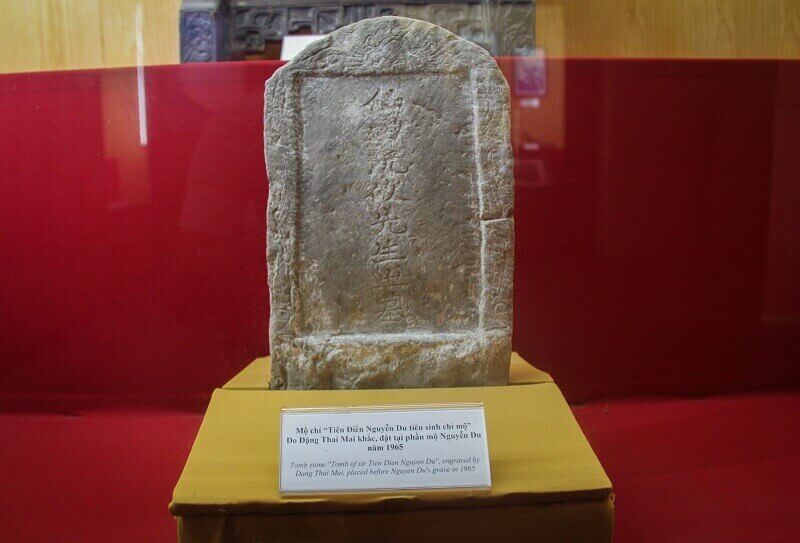 仙阮攸先生之墓
Mộ chí “Tiên Điền Nguyễn Du tiên sinh chi mộ”
Do Đặng Thai Mai khắc, đặt tại phần mộ Nguyễn Du
năm 1965
Tomb stone "Tomb of sir Tien Dien Nguyen Du", engraved by
Dang Thai Mai, placed before Nguyen Du's grave in 1965